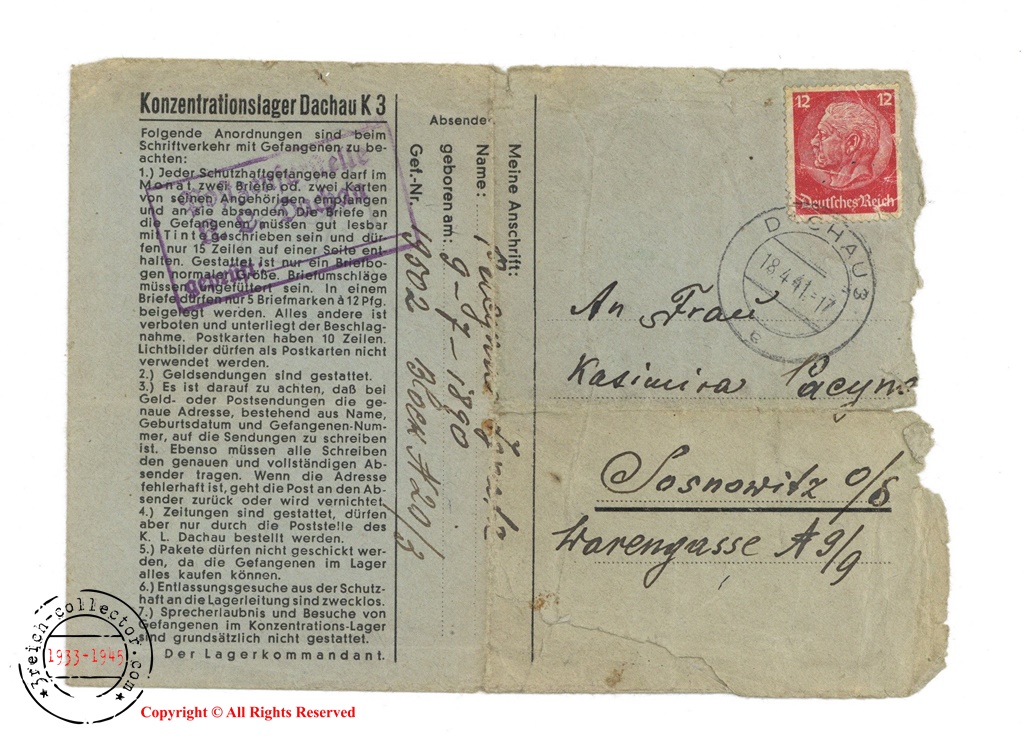 Konzentrationslager Dachau K 3
Folgende Anordnungen sind beim
Schriftverkehr mit Gefangenen zu be-
achten:
1.) Jeder Schutzhaftgefangene darf im
Monat zwei Briefe od. zwei Karten
von seinen Angehörigen empfangen
und an sie absenden. Die Briefe an
die Gefangenen müssen gut lesbar
mit Tinte geschrieben sein und dür-
fen nur 15 Zeilen auf einer Seite ent-
halten. Gestattet ist nur ein Briefbo-
gen normaler Größe. Briefumschläge
müssen ungefüttert sein. In einem
Briefe dürfen nur 5 Briefmarken à 12 Pfg.
beigelegt werden. Alles andere ist
verboten und unterliegt der Beschlag-
nahme. Postkarten haben 10 Zeilen.
Lichtbilder dürfen als Postkarten nicht
verwendet werden.
2.) Geldsendungen sind gestattet.
3.) Es ist darauf zu achten, daß bei
Geld- oder Postsendungen die ge-
naue Adresse, bestehend aus Name,
Geburtsdatum und Gefangenen-Num-
mer, auf die Sendungen zu schreiben
ist. Ebenso müssen alle Schreiben
den genauen und vollständigen Ab-
sender tragen. Wenn die Adresse
fehlerhaft ist, geht die Post an den Ab-
sender zurück oder wird vernichtet.
4.) Zeitungen sind gestattet, dürfen
aber nur durch die Poststelle des
K. L. Dachau bestellt werden.
5.) Pakete dürfen nicht geschickt wer-
den, da die Gefangenen im Lager
alles kaufen können.
6.) Entlassungsgesuche aus der Schutz-
haft an die Lagerleitung sind zwecklos.
7.) Sprecherlaubnis und Besuche von
Gefangenen im Konzentrations-Lager
sind grundsätzlich nicht gestattet.
Der Lagerkommandant.
K. L. Dachau
geprüft
Absender
Meine Anschrift:
Name:
geboren am: 9-7-1890
Gef.-Nr. 19302 Block N 20/3
12 12
Deutsches Reich
DACHAU 3
18.4.41.-17
c
An Frau
Kasimira Pacyn
Sosnowitz O/S
Warengasse A 9/9
3reich-collector.com
1933-1945
Copyright © All Rights Reserved